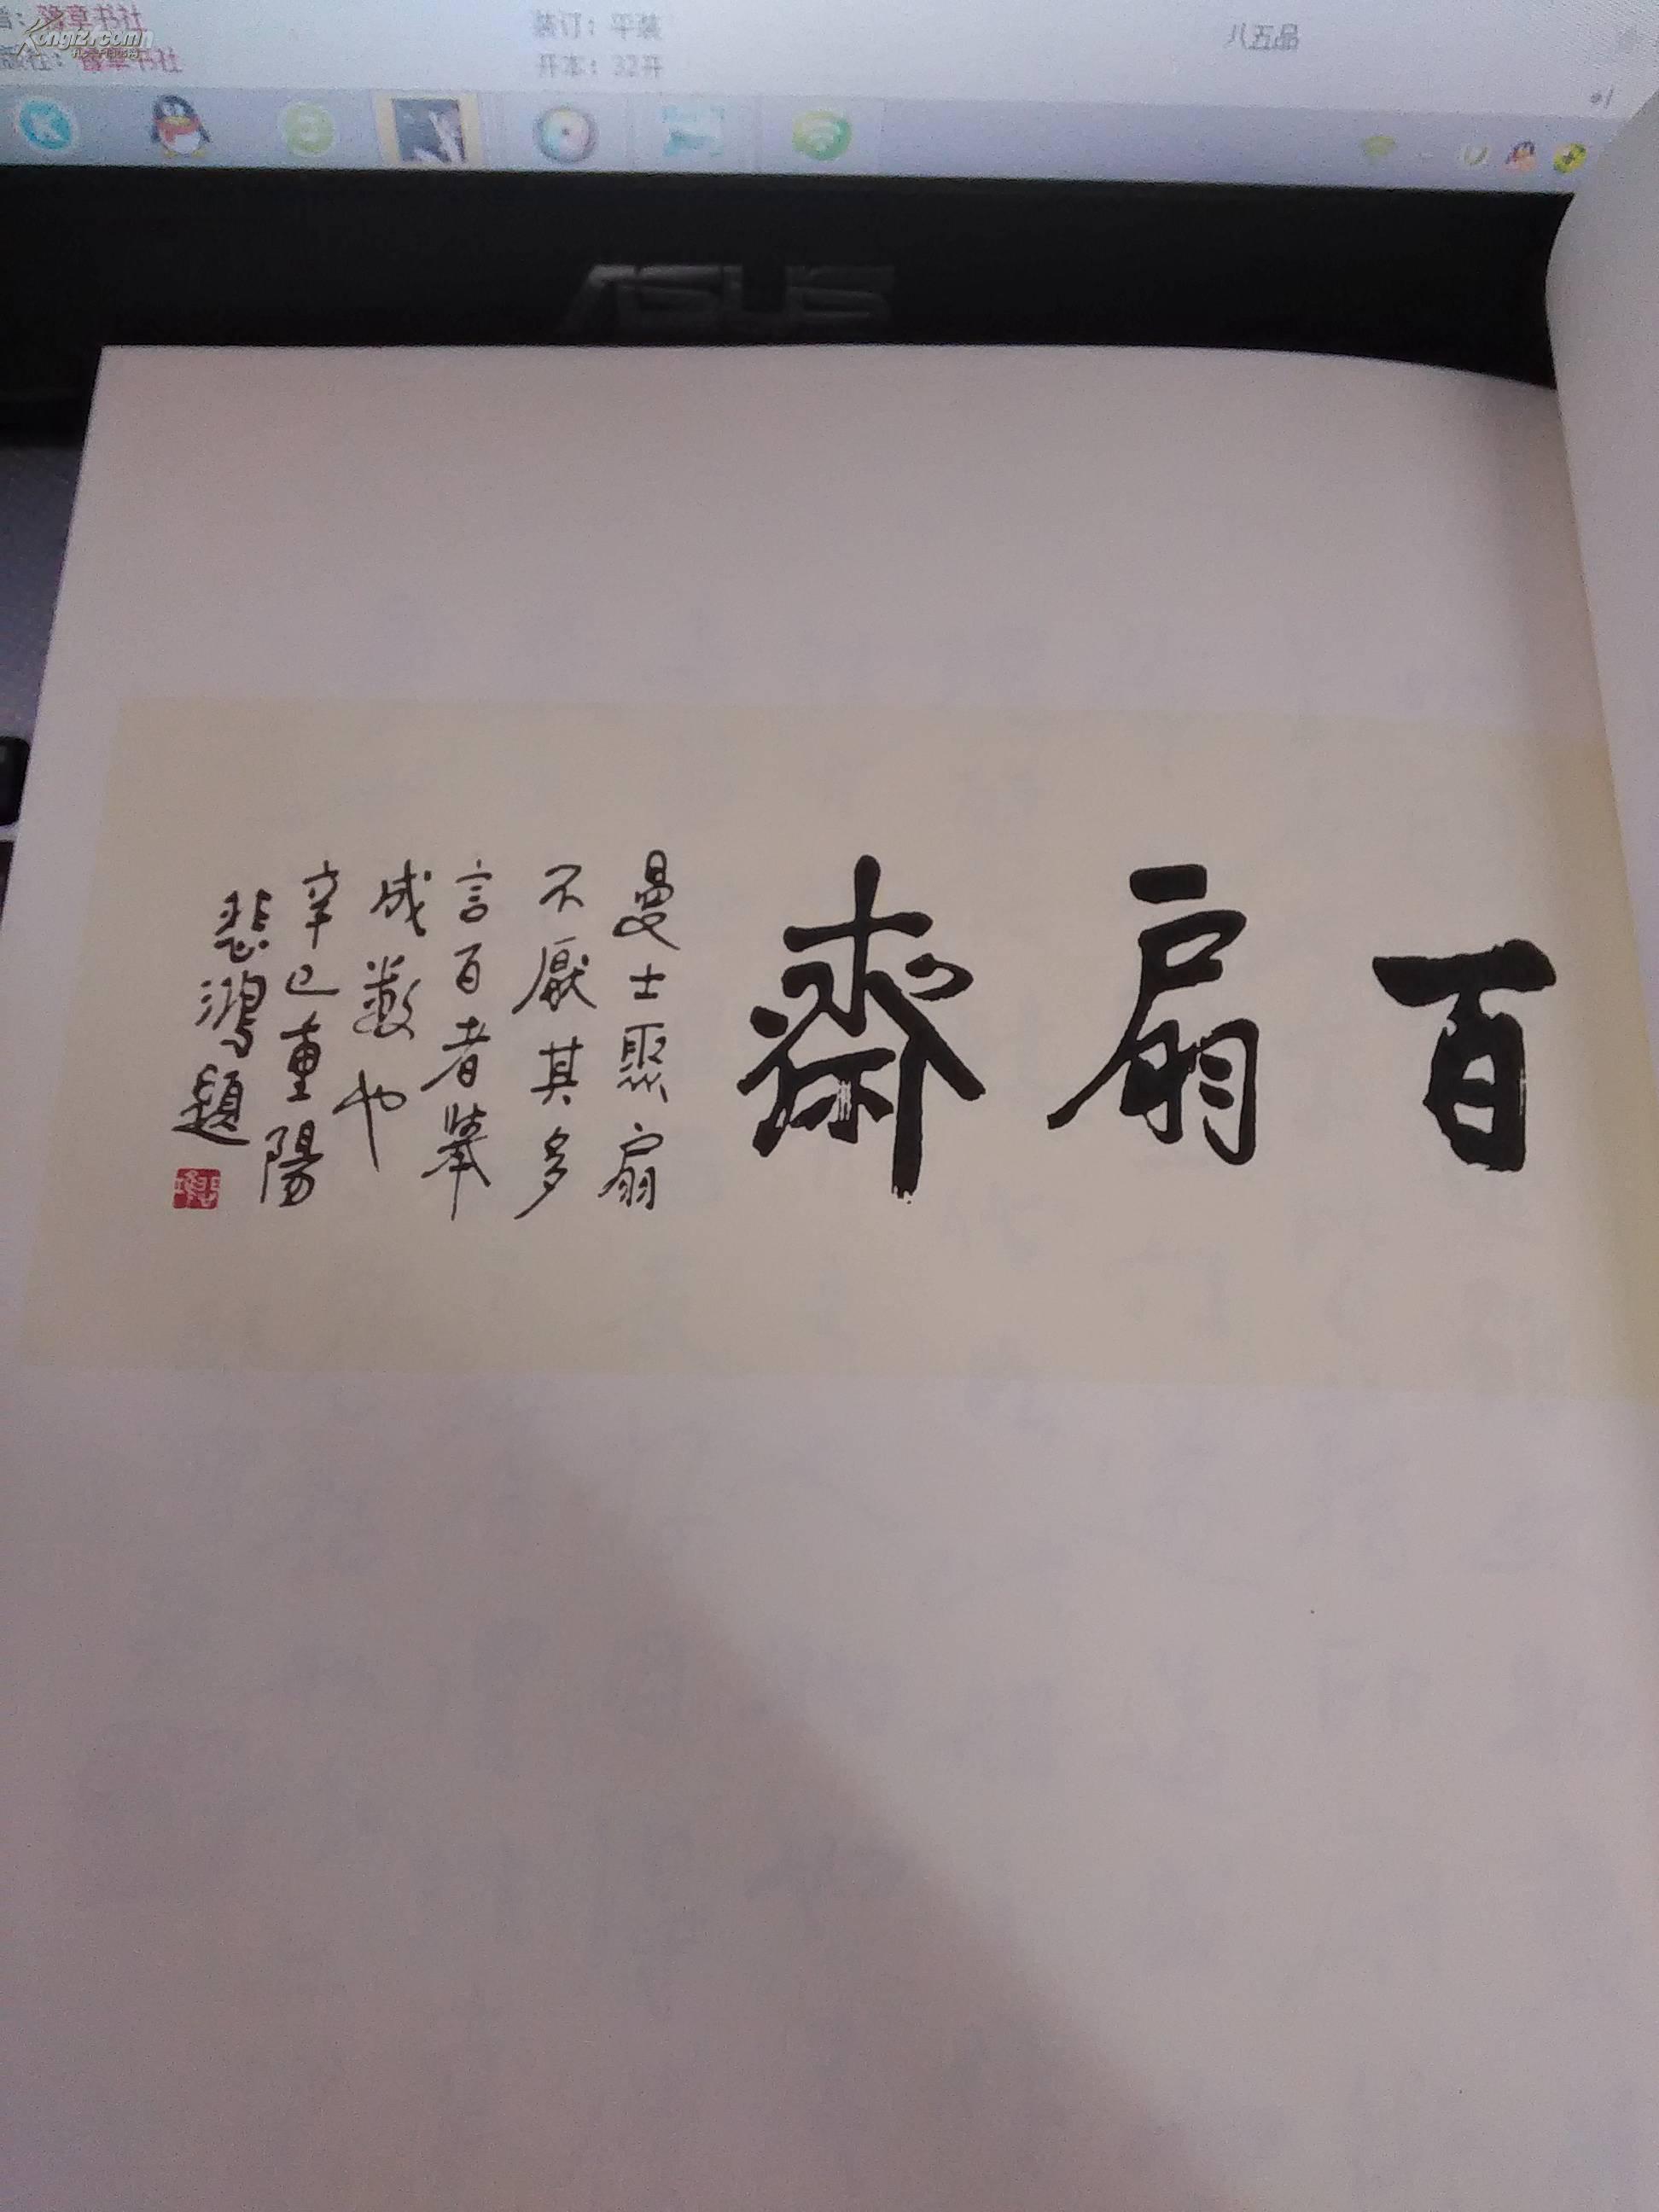 Kongfz.com
豫章书社
版社：豫章书社
装订：平装
开本：32开
八五品
ASUS
百扇齋
曼士聚扇
不厭其多
言百者舉
成數也
辛巳重陽
悲鴻題